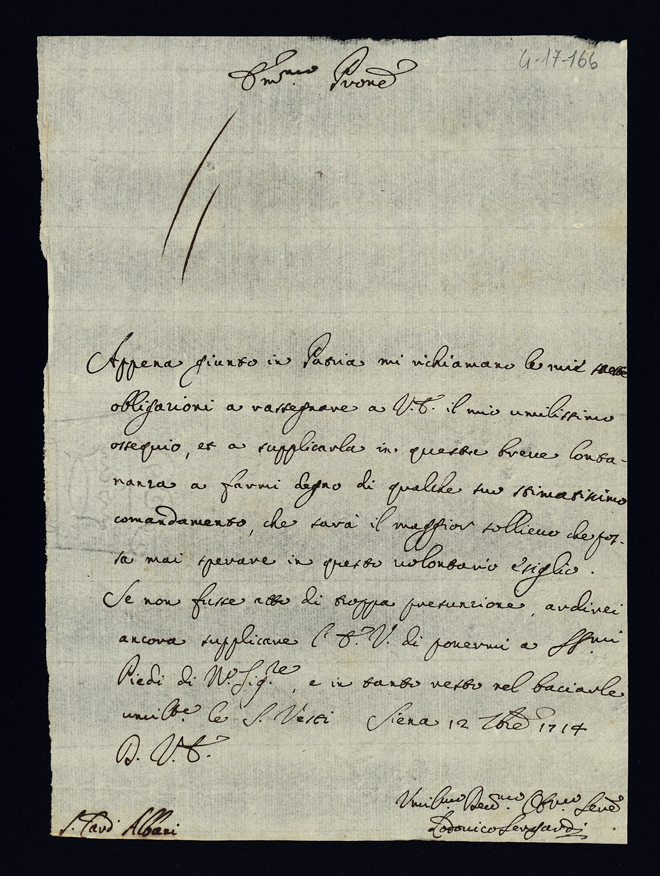 4-17-166
Em.mo Prone
Appena giunto in Patria mi richiamano le mie
obligazioni a rassegnare a V.E. il mio umilissimo
ossequio, et a supplicarla in questa breve lonta-
nanza a farmi degno di qualche suo stimatissimo
comandamento, che sarà il maggior sollievo che pos-
sa mai sperare in questo volontario esiglio.
Se non fusse atto di troppa presunzione, ardirei
ancora supplicare l'E.V. di ponermi a SS.mi
Piedi di N.ro Sig.re, e in tanto resto nel baciarle
umilte. le S. Vesti Siena 12 Xbre 1714
D. V.E.
Umil.mo Dev.mo Obl.mo Serve
Lodovico Sergardi
S. Card. Albani